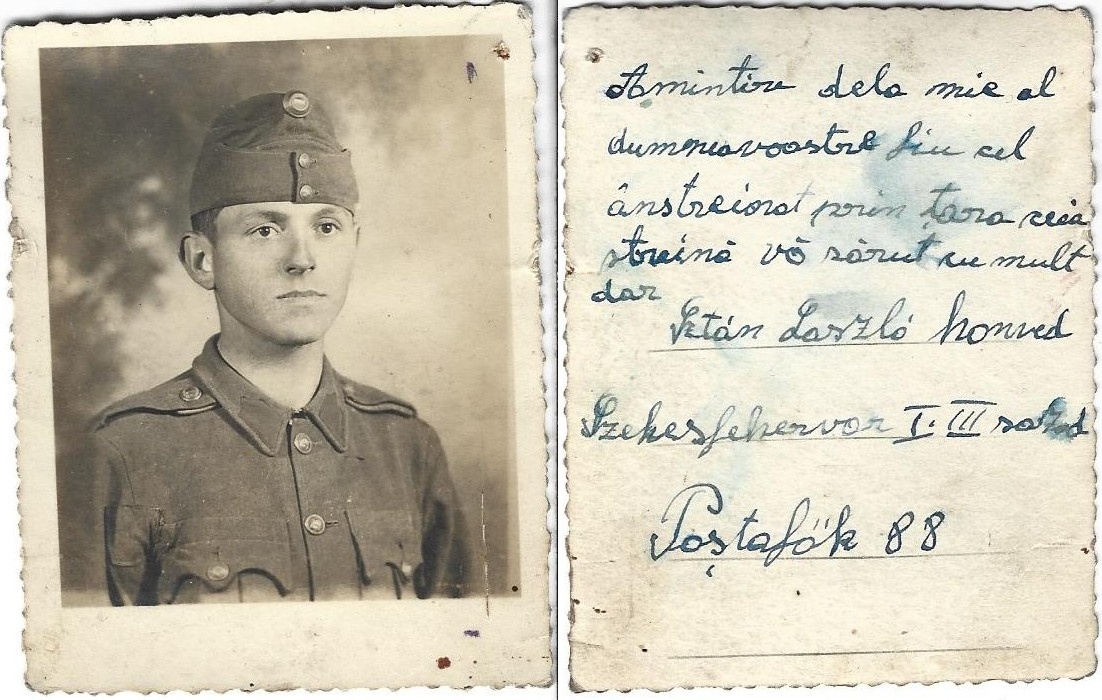 Amintire dela mie al
dumneavoastră fiu cel
ânstreinat prin țara ceia
streină vă sărut cu mult
dar
László honved
Szekesfehervar I. III sazad
Poștafŏk 88